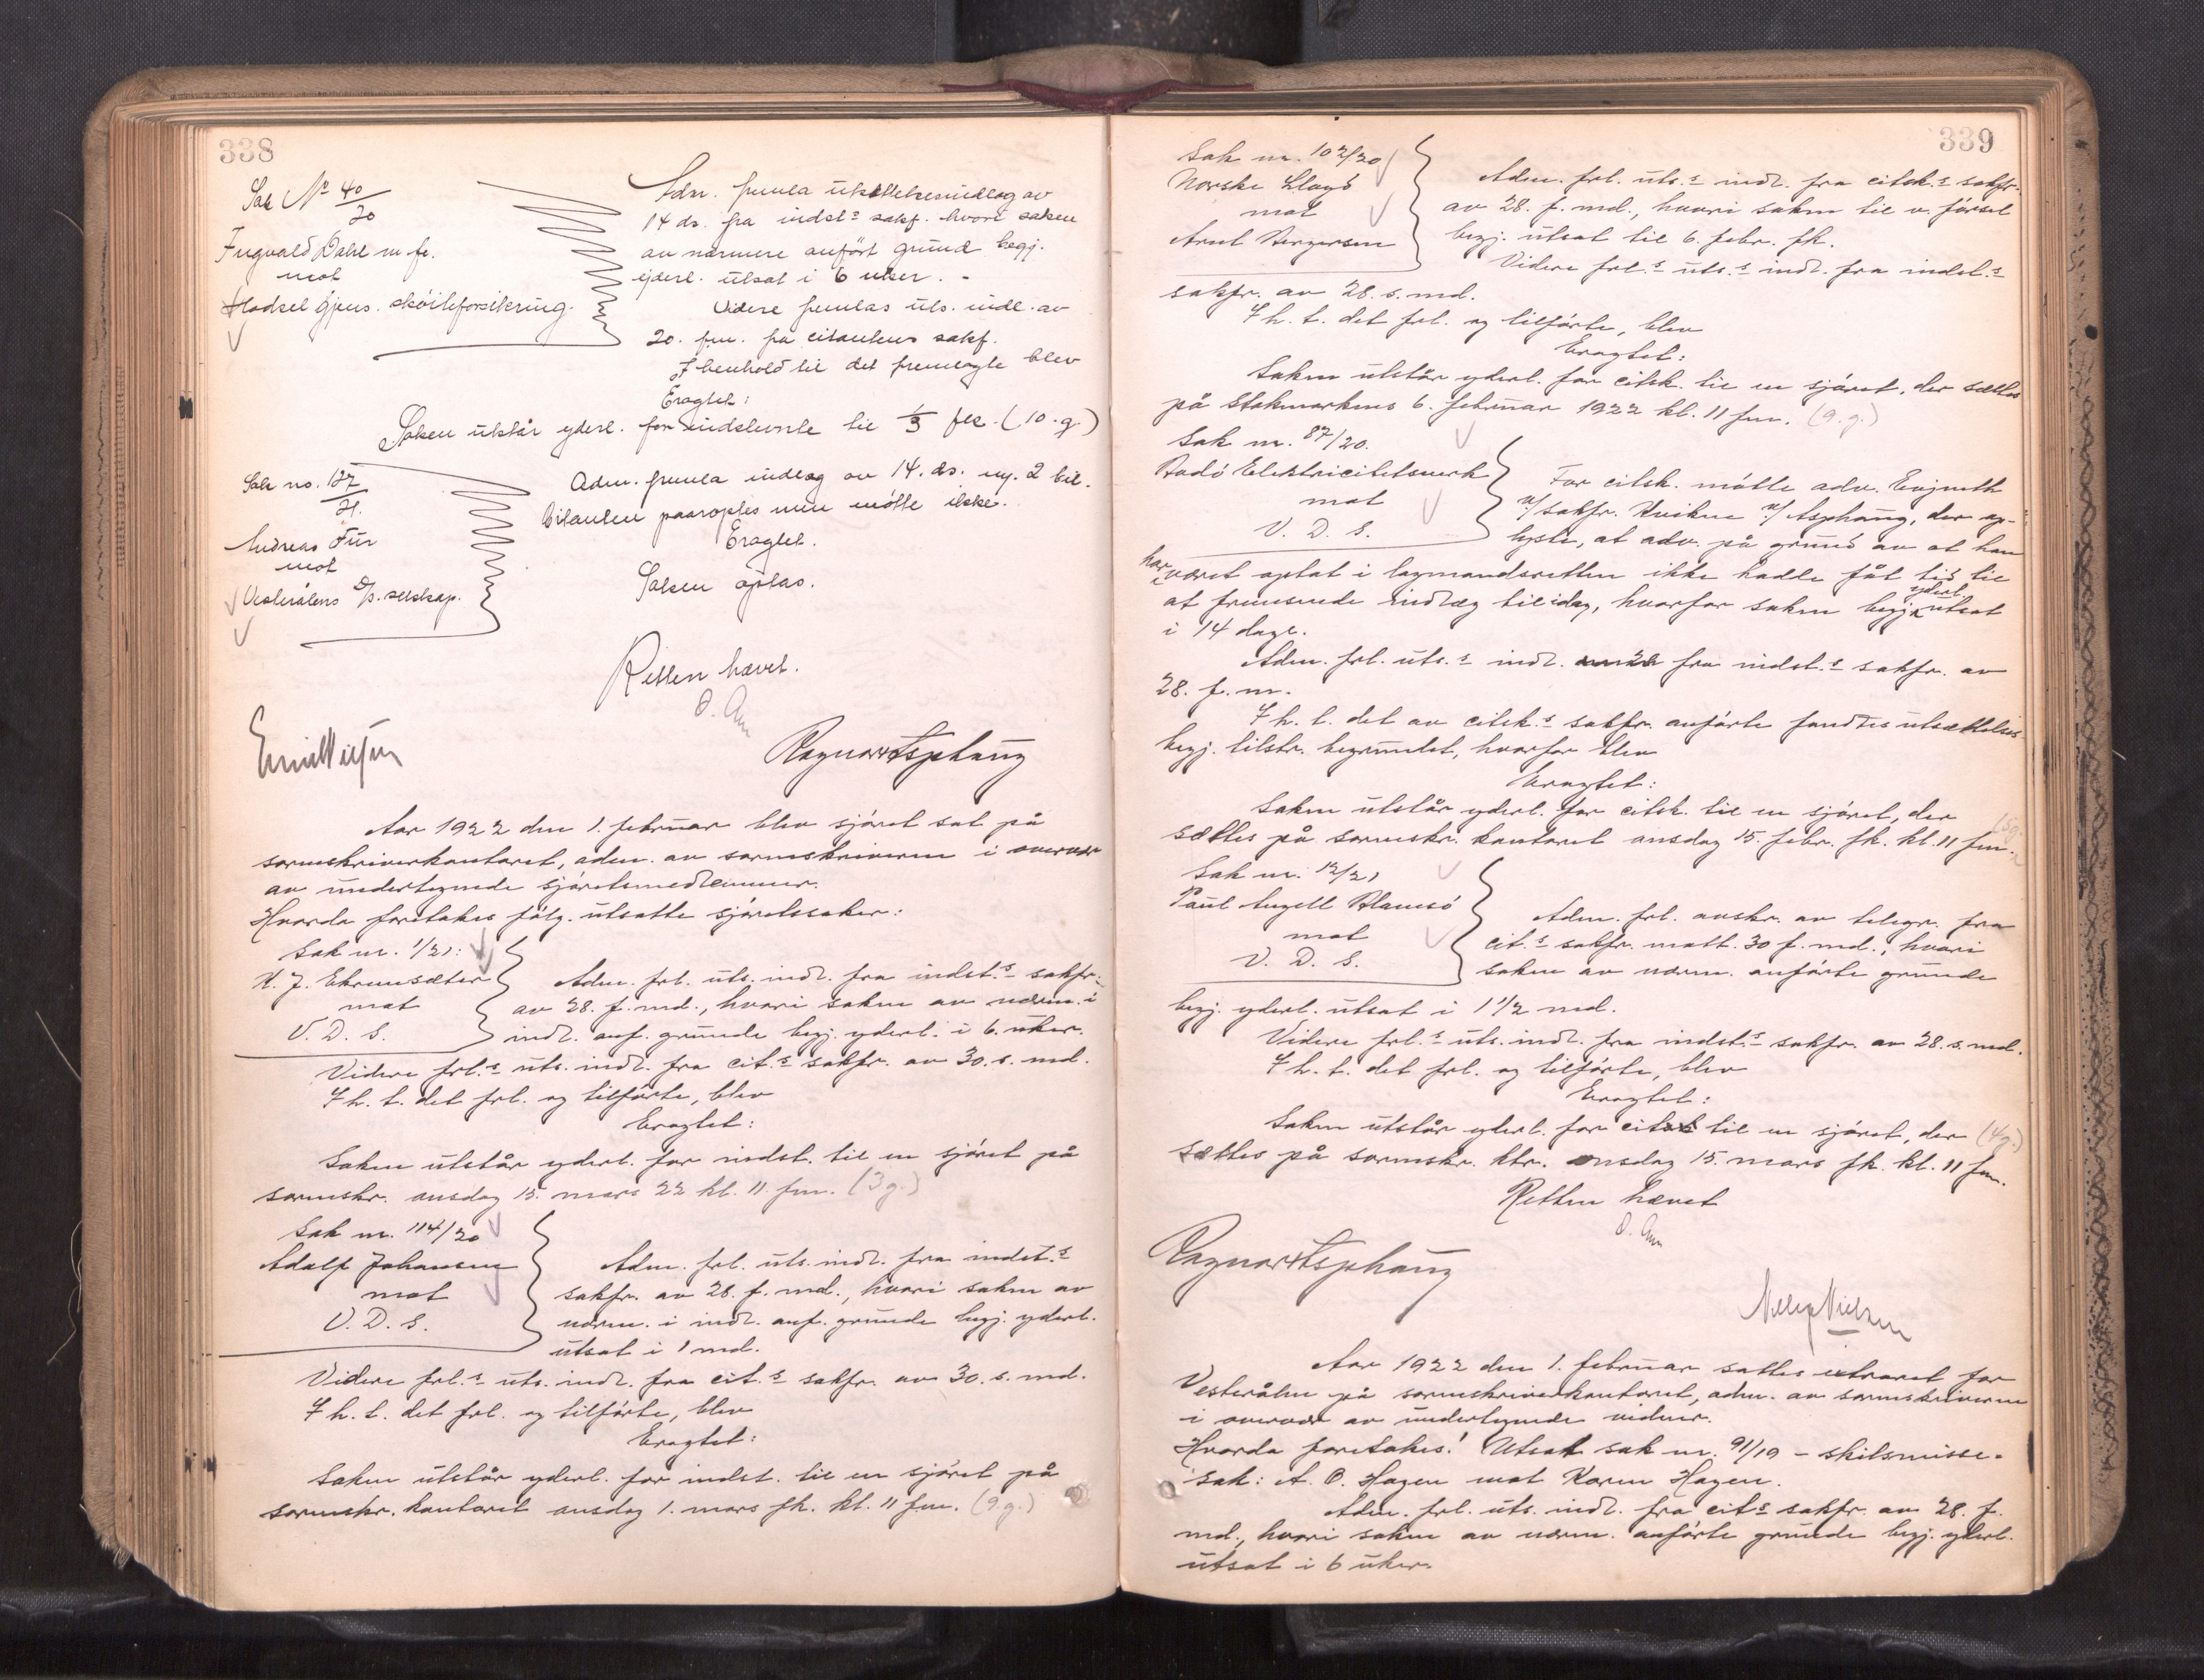 338
Sak No 40/20
Ingvald Dahl m. fr.
mot
Hadsel gjens. skøiteforsikring.
Adm. fremla utsættelsesindlæg av
14 ds. fra indst.s sakf. hvori saken
av nærmere anført grund begj.
yderl. utsat i 6 uker. -
Videre fremlas uts. indl. av
20. fm. fra citantens sakf.
I henhold til det fremlagte blev
Eragtet:
Saken utstår yderl. for indstevnte til 1/3 fk. (10. g.)
Sak no. 127/21.
Andreas Für
mot
Vesterålens D/s. selskap.
Adm. fremla indlæg av 14. ds. m. 2 bil.
Citanten paaroptes men møtte ikke.
Eragtet.
Saken optas.
Retten hævet.
O. Am
Emil Nielsen
Ragnar Asphaug
Aar 1922 den 1. februar blev sjøret sat på
sorenskriverkontoret, adm. av sorenskriveren i overvær
av undertegnede sjøretsmedlemmer.
Hvorda foretakes følg. utsatte sjøretssaker:
Sak nr. 1/21:
H. J. Ekrensæter
mot
V. D. S.
Adm. frl. uts. indl. fra indst.s sakfr.
av 28. f. md., hvori saken av nærm. i
indl. anf. grunde begj. yderl. i 6. uker.
Videre frl.s uts. indl. fra cit.s sakfr. av 30. s. md.
I h. t. det frl. og tilførte, blev
Eragtet:
Saken utstår yderl. for indst. til en sjøret på
sorenskr. onsdag 15. mars 22 kl. 11 fm. (3 g.)
Sak nr. 114/20
Adolf Johansen
mot
V. D. S.
Adm. frl. uts. indl. fra indst.s
sakfr. av 28. f. md., hvori saken av
nærm. i indl. anf. grunde begj. yderl.
utsat i 1 md.
Videre frl.s uts. indl. fra cit.s sakfr. av 30. s. md.
I h. t. det frl. og tilførte, blev
Eragtet:
Saken utstår yderl. for indst. til en sjøret på
sorenskr. kontoret onsdag 1. mars fk. kl. 11 fm. (9. g.)
339
Sak nr. 102/20
Norske Lloyd
mot
Arnt Bergersen
Adm. frl. uts.s indl. fra citsk.s sakfr.
av 28. f. md., hvori saken til v. førsel
begj. utsat til 6. febr. fk.
Videre frl.s uts.s indl. fra indst.s
sakfr. av 28. s. md.
I h. t. det frl. og tilførte, blev
Eragtet:
Saken utstår yderl. for citsk. til en sjøret, der sættes
på Stokmarknes 6. februar 1922 kl. 11 fm. (9. g.)
Sak nr. 87/20.
Bodø Elektricitetsverk
mot
V. D. S.
For citsk. møtte adv. Evjenth
v/ sakfr. Kvikne v/ Asphaug, der op-
lyste, at adv. på grund av at han
har været optat i lagmandsretten ikke hadde fåt tid til
at fremsende indlæg til idag, hvorfor saken begj. yderl. utsat
i 14 dage.
Adm. frl. uts.s indl. fra indst.s sakfr. av
28. f. m.
I h. t. det av citsk.s sakfr. anførte fandtes utsættelses-
begj. tilstr. begrundet, hvorfor blev
Eragtet:
Saken utstår yderl. for citsk. til en sjøret, der
sættes på sorenskr. kontoret onsdag 15. febr. fk. kl. 11 fm.
Sak nr. 12/21
Paul Angell Blamsø
mot
V. D. S.
Adm. frl. avskr. av telegr. fra
cit.s sakfr. mott. 30 f. md., hvori
saken av nærm. anførte grunde
begj. yderl. utsat i 1 1/2 md.
Videre frl.s uts. indl. fra indst.s sakfr. av 28. s. md.
I h. t. det frl. og tilførte, blev
Eragtet:
Saken utstår yderl. for citsk til en sjøret, der (4 g.)
sættes på sorenskr. ktr. onsdag 15. mars fk. kl. 11 fm.
Retten hævet
O. Am
Ragnar Asphaug
Nielsen
Aar 1922 den 1. februar sattes extraret for
Vesterålen på sorenskriverkontoret, adm. av sorenskriveren
i overvær av undertegnede vidner.
Hvorda foretakes: Utsat sak nr. 91/19 – skilsmisse-
sak: A. O. Hagen mot Karen Hagen.
Adm. frl. uts. indl. fra cits sakfr. av 28. f.
md., hvori saken av nærm. anførte grunde begj. yderl.
utsat i 6 uker.